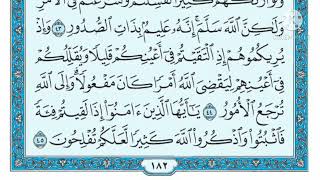 وَلَوْ أَرَىٰكَهُمْ كَثِيرًا لَّفَشِلْتُمْ وَلَتَنَٰزَعْتُمْ فِي ٱلْأَمْرِ
وَلَٰكِنَّ ٱللَّهَ سَلَّمَ إِنَّهُۥ عَلِيمٌۢ بِذَاتِ ٱلصُّدُورِ ٤٣ وَإِذْ
يُرِيكُمُوهُمْ إِذِ ٱلْتَقَيْتُمْ فِيٓ أَعْيُنِكُمْ قَلِيلًا وَيُقَلِّلُكُمْ
فِيٓ أَعْيُنِهِمْ لِيَقْضِيَ ٱللَّهُ أَمْرًا كَانَ مَفْعُولًا وَإِلَى ٱللَّهِ
تُرْجَعُ ٱلْأُمُورُ ٤٤ يَٰٓأَيُّهَا ٱلَّذِينَ ءَامَنُوٓا۟ إِذَا لَقِيتُمْ فِئَةً
فَٱثْبُتُوا۟ وَٱذْكُرُوا۟ ٱللَّهَ كَثِيرًا لَّعَلَّكُمْ تُفْلِحُونَ ٤٥
١٨٢